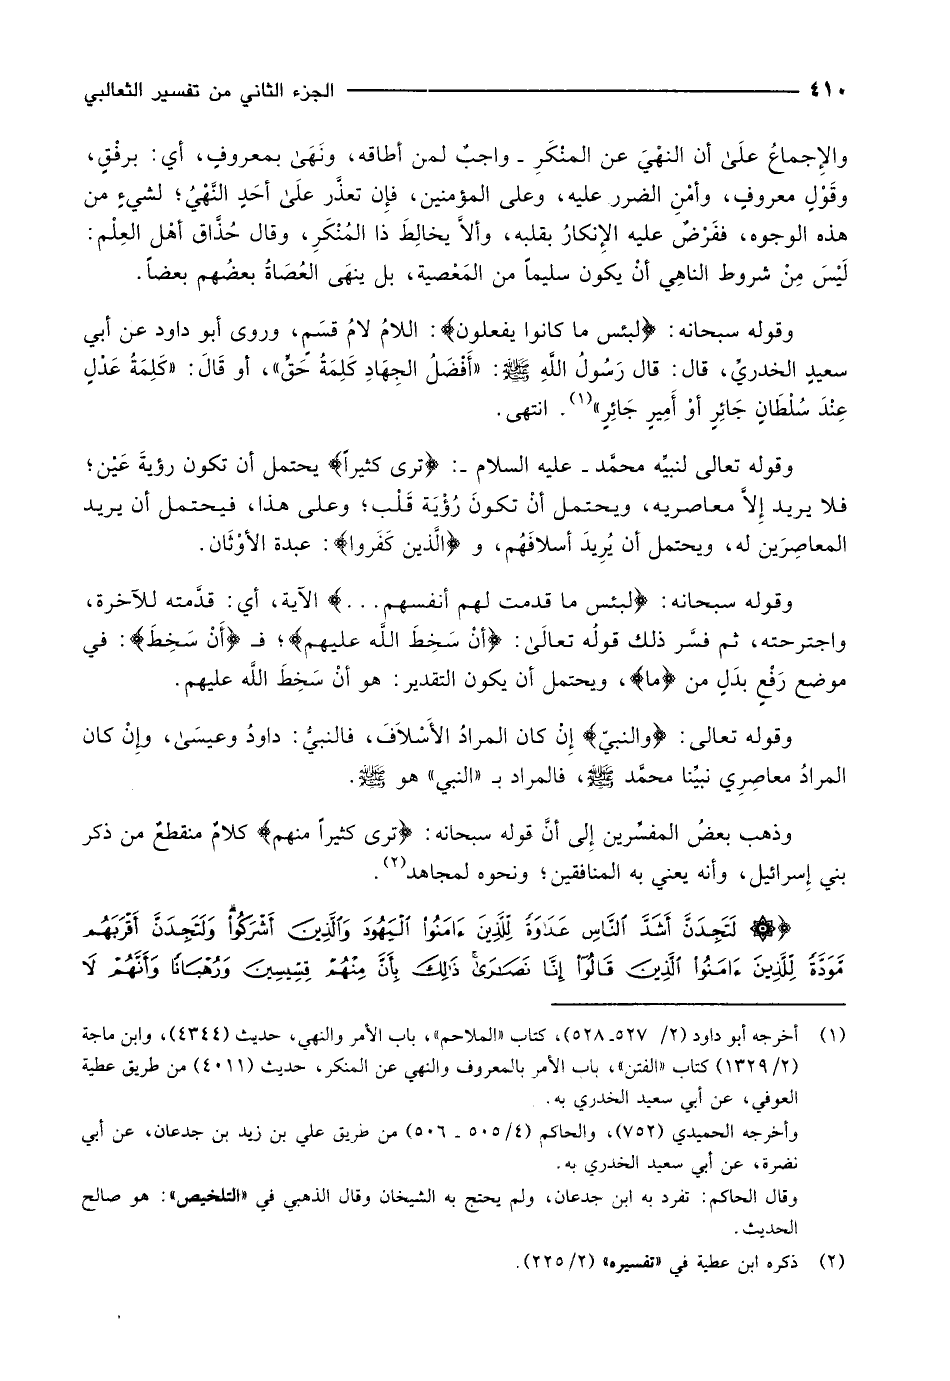 ٤١٠ ــــــــــــــــــــــــــــــــ الجزء الثاني من تفسير الثعالبي
والإِجماعُ علَىٰ أن النهْيَ عن المنْكَرِ ـ واجبٌ لمن أطاقه، ونَهَىٰ بمعروفٍ، أي: برفْقٍ،
وقَوْلٍ معروفٍ، وأمْنِ الضرر عليه، وعلى المؤمنين، فإِن تعذَّر علَىٰ أحَدٍ النَّهْيُ؛ لشيءٍ من
هذه الوجوه، ففَرْضٌ عليه الإِنكارُ بقلبه، وألاَّ يخالِطَ ذا المُنْكَرِ، وقال حُذَّاق أهْل العِلْم:
لَيْسَ مِنْ شروط الناهِي أنْ يكون سليماً من المَعْصية، بل ينهَى العُصَاةُ بعضُهم بعضاً.
وقوله سبحانه: ﴿لبئس ما كانوا يفعلون﴾: اللامُ لامُ قسَمٍ، وروى أبو داود عن أبي
سعيدٍ الخدريِّ، قال: قال رَسُولُ اللَّهِ ﷺ: «أَفْضَلُ الجِهَادِ كَلِمَةُ حَقٍّ»، أو قَالَ: «كَلِمَةُ عَدْلٍ
عِنْدَ سُلْطَانٍ جَائِرٍ أوْ أَمِيرٍ جَائِرٍ»(١). انتهى.
وقوله تعالى لنبيِّه محمَّد ـ عليه السلام ـ: ﴿ترى كثيراً﴾ يحتمل أن تكون رؤيةَ عَيْن؛
فلا يريد إِلاَّ معاصريه، ويحتمل أنْ تكونَ رُؤْيَة قَلْب؛ وعلى هذا، فيحتمل أن يريد
المعاصِرَين له، ويحتمل أن يُرِيدَ أسلافَهُم، و ﴿الَّذين كَفَروا﴾: عبدة الأوْثَان.
وقوله سبحانه: ﴿لبئس ما قدمت لهم أنفسهم...﴾ الآية، أي: قدَّمته للآخرة،
واجترحته، ثم فسَّر ذلك قولُه تعالَىٰ: ﴿أنْ سَخِطَ اللَّه عليهم﴾؛ فـ ﴿أَنْ سَخِطَ﴾: في
موضع رَفْعٍ بدَلٍ من ﴿ما﴾، ويحتمل أن يكون التقدير: هو أنْ سَخِطَ اللَّه عليهم.
وقوله تعالى: ﴿والنبيّ﴾ إِنْ كان المرادُ الأَسْلاَفَ، فالنبيُّ: داودُ وعيسَىٰ، وإِنْ كان
المرادُ معاصِرِي نبيِّنا محمَّد ﷺ، فالمراد بـ «النبي» هو ﷺ.
وذهب بعضُ المفسِّرين إلى أنَّ قوله سبحانه: ﴿ترى كثيراً منهم﴾ كلامٌ منقطعٌ من ذكر
بني إِسرائيل، وأنه يعني به المنافقين؛ ونحوه لمجاهد(٢).
﴿۞ لَتَجِدَنَّ أَشَدَّ ٱلنَّاسِ عَدَٰوَةً لِّلَّذِينَ ءَامَنُوا۟ ٱلْيَهُودَ وَٱلَّذِينَ أَشْرَكُوا۟ۖ وَلَتَجِدَنَّ أَقْرَبَهُم
مَّوَدَّةً لِّلَّذِينَ ءَامَنُوا۟ ٱلَّذِينَ قَالُوٓا۟ إِنَّا نَصَٰرَىٰۚ ذَٰلِكَ بِأَنَّ مِنْهُمْ قِسِّيسِينَ وَرُهْبَانًا وَأَنَّهُمْ لَا
(١) أخرجه أبو داود (٢/ ٥٢٧ـ ٥٢٨)، كتاب «الملاحم»، باب الأمر والنهي، حديث (٤٣٤٤)، وابن ماجة
(٢/ ١٣٢٩) كتاب «الفتن»، باب الأمر بالمعروف والنهي عن المنكر، حديث (٤٠١١) من طريق عطية
العوفي، عن أبي سعيد الخدري به.
وأخرجه الحميدي (٧٥٢)، والحاكم (٤/ ٥٠٥ ـ ٥٠٦) من طريق علي بن زيد بن جدعان، عن أبي
نضرة، عن أبي سعيد الخدري به.
وقال الحاكم: تفرد به ابن جدعان، ولم يحتج به الشيخان وقال الذهبي في «التلخيص»: هو صالح
الحديث.
(٢) ذكره ابن عطية في «تفسيره» (٢/ ٢٢٥).